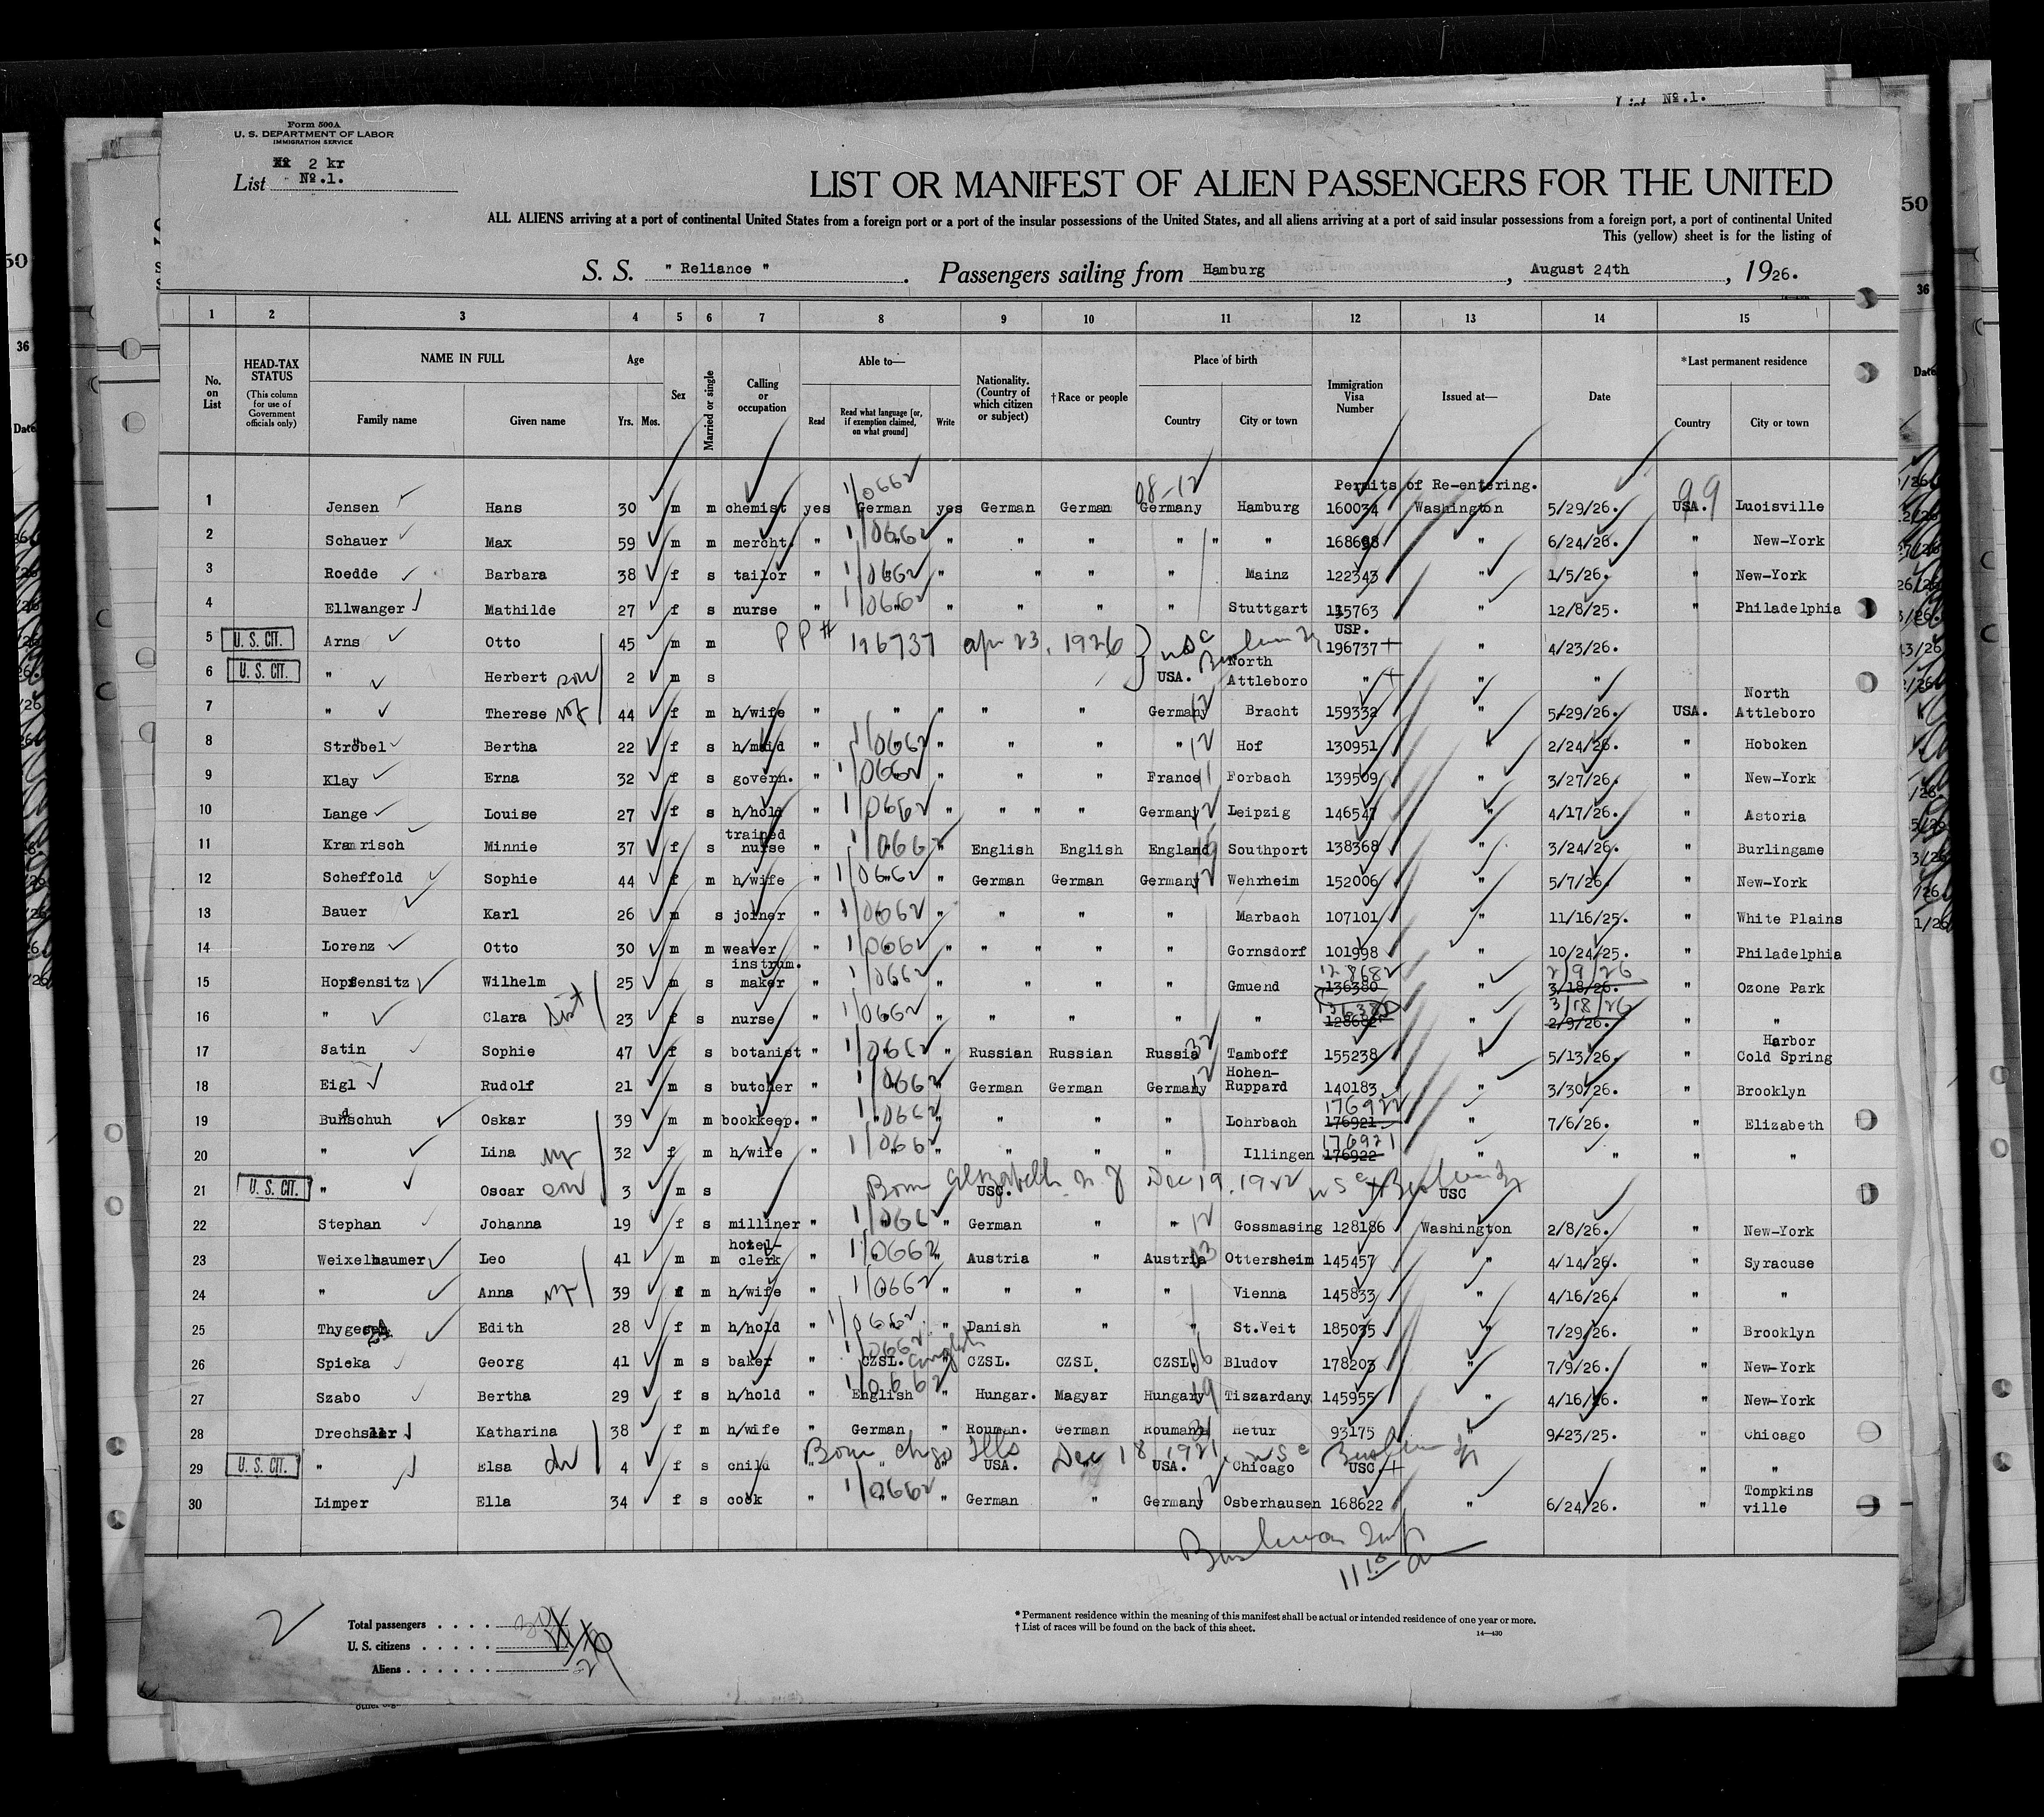 List No. 1.
Form 500A
U. S. DEPARTMENT OF LABOR
IMMIGRATION SERVICE
2 kr
List No.1.
LIST OR MANIFEST OF ALIEN PASSENGERS FOR THE UNITED
ALL ALIENS arriving at a port of continental United States from a foreign port or a port of the insular possessions of the United States, and all aliens arriving at a port of said insular possessions from a foreign port, a port of continental United
This (yellow) sheet is for the listing of
S. S. " Reliance " . Passengers sailing from Hamburg , August 24th , 1926.
1 2 3 4 5 6 7 8 9 10 11 12 13 14 15
No. on List
HEAD-TAX STATUS (This column for use of Government officials only)
NAME IN FULL Family name Given name
Age Yrs. Mos.
Sex
Married or single
Calling or occupation
Able to— Read Read what language [or, if exemption claimed, on what ground] Write
Nationality. (Country of which citizen or subject)
†Race or people
Place of birth Country City or town
Immigration Visa Number
Issued at—
Date
*Last permanent residence Country City or town
Permits of Re-entering.
1 Jensen Hans 30 m m chemist yes 1/0662 German yes German German 08-12 Germany Hamburg 160034 Washington 5/29/26. 99 USA. Luoisville
2 Schauer Max 59 m m mercht. " 1/0662 " " " " " " 168698 " 6/24/26. " New-York
3 Roedde Barbara 38 f s tailor " 1/0662 " " " " Mainz 122343 " 1/5/26. " New-York
4 Ellwanger Mathilde 27 f s nurse " 1/0662 " " " " Stuttgart 115763 " 12/8/25. " Philadelphia
5 U. S. CIT. Arns Otto 45 m m PP# 196737 apr 23, 1926 USC USP. 196737+ " 4/23/26.
6 U. S. CIT. " Herbert son 2 m s USA. North Attleboro " + " "
7 " Therese wf 44 f m h/wife " " " " " Germany 12 Bracht 159332 " 5/29/26. USA. North Attleboro
8 Ströbel Bertha 22 f s h/maid " 1/0662 " " " " 12 Hof 130951 " 2/24/26. " Hoboken
9 Klay Erna 32 f s govern. " 1/0662 " " " France 11 Forbach 139509 " 3/27/26. " New-York
10 Lange Louise 27 f s h/hold " 1/0662 " " " " Germany 12 Leipzig 146547 " 4/17/26. " Astoria
11 Kramrisch Minnie 37 f s trained nurse " 1/0662 " English English England Southport 138368 " 3/24/26. " Burlingame
12 Scheffold Sophie 44 f m h/wife " 1/0662 " German German Germany 12 Wehrheim 152006 " 5/7/26. " New-York
13 Bauer Karl 26 m s joiner " 1/0662 " " " " Marbach 107101 " 11/16/25. " White Plains
14 Lorenz Otto 30 m m weaver " 1/0662 " " " " " Gornsdorf 101998 " 10/24/25. " Philadelphia
15 Hopfensitz Wilhelm 25 m s instrum. maker " 1/0662 " " " " Gmuend 128682 136380 " 2/9/26 3/18/26. " Ozone Park
16 " Clara sist 23 f s nurse " 1/0662 " " " " " 136380 128682 " 3/18/26 2/9/26. " "
17 Satin Sophie 47 f s botanist " 1/0662 " Russian Russian Russia 32 Tamboff 155238 " 5/13/26. " Harbor Cold Spring
18 Eigl Rudolf 21 m s butcher " 1/0662 " German German Germany 12 Hohen-Ruppard 140183 " 3/30/26. " Brooklyn
19 Bundschuh Oskar 39 m m bookkeep. " 1/0662 " " " " Lohrbach 176922 176921 " 7/6/26. " Elizabeth
20 " Lina wf 32 f m h/wife " 1/0662 " " " " Illingen 176921 176922 " " " "
21 U. S. CIT. " Oscar son 3 m s Born Elizabeth N. J Dec 19, 1922 USC. USC
22 Stephan Johanna 19 f s milliner " 1/0662 " German " " 12 Gossmasing 128186 Washington 2/8/26. " New-York
23 Weixelbaumer Leo 41 m m hotel-clerk " 1/0662 " Austria " Austria 03 Ottersheim 145457 " 4/14/26. " Syracuse
24 " Anna wf 39 f m h/wife " 1/0662 " " " " Vienna 145833 " 4/16/26. " "
25 Thygesen Edith 28 f m h/hold " 1/0662 " Danish " " St.Veit 185035 " 7/29/26. " Brooklyn
26 Spicka Georg 41 m s baker " 1/0662 CZSL. English " CZSL. CZSL. CZSL. 06 Bludov 178203 " 7/9/26. " New-York
27 Szabo Bertha 29 f s h/hold " 1/0662 English " Hungar. Magyar Hungary 19 Tiszardany 145955 " 4/16/26. " New-York
28 Drechsler Katharina 38 f m h/wife " German " Rouman. German Roumania 31 Hetur 93175 " 9/23/25. " Chicago
29 U. S. CIT. " Elsa 4 f s child " " " Born Chgo Ills Dec 18 1921. USC USA. USA. Chicago USC.+ " "
30 Limper Ella 34 f s cook " 1/0662 " German " Germany 12 Osberhausen 168622 " 6/24/26. " Tompkins ville
2
Total passengers
U. S. citizens
Aliens
* Permanent residence within the meaning of this manifest shall be actual or intended residence of one year or more.
† List of races will be found on the back of this sheet.
14—430